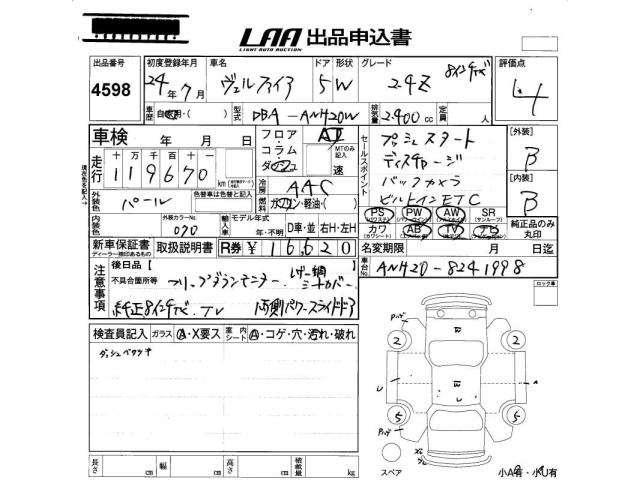 LAA 出品申込書
LIGHT AUTO AUCTION
出品番号 初度登録年月 車名 ドア 形状 グレード 8インチナビ 評価点
4598 24年7月 ヴェルファイア 5 W 2.4Z 4
車歴 自家用・( ) 型式 DBA-ANH20W 排気量 2.400cc 定員 人
車検 年 月 日 フロア・コラム・ダッシュ AT MTのみ記入 速
セールスポイント プッシュスタート
ディスチャージ
バックカメラ
ビルトインETC
[外装] B
[内装] B
走行 十万千百十 119670 km
現在色を記入 外装色 パール 色替車は色替と記入
冷房 AAC
燃料 ガソリン・軽油・( )
内装色 外装カラーNo. 070 輸入車 モデル年式 年・不明 D車・並 右H・左H
PS PW AW SR(サンルーフ) 純正品のみ丸印
カワ AB TV ナビ
新車保証書 取扱説明書 R券 ¥16,620 名変期限 月 日迄
ディーラー捺印あるもの
車台No. ANH20-8241998
注意事項 後日品【 】
不具合箇所等 フリップダウンモニター シートカバー
純正8インチナビ、TV 両側パワースライドドア
ロック車
検査員記入 ガラス A・X要ス 室内 シート A・コゲ・穴・汚れ・破れ
ダッシュベタツキ
2 2
5 5
スペア
小A有・小U有
長さ cm 幅 cm 高さ cm 積載量 kg